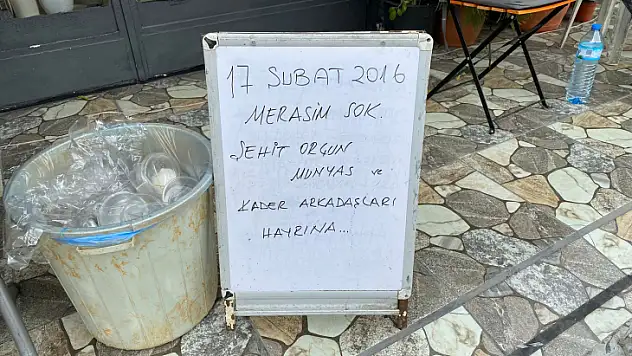 17 ŞUBAT 2016
MERASİM SOK.
ŞEHİT ORGUN
MUNYAS ve
KADER ARKADAŞLARI
HAYRINA...